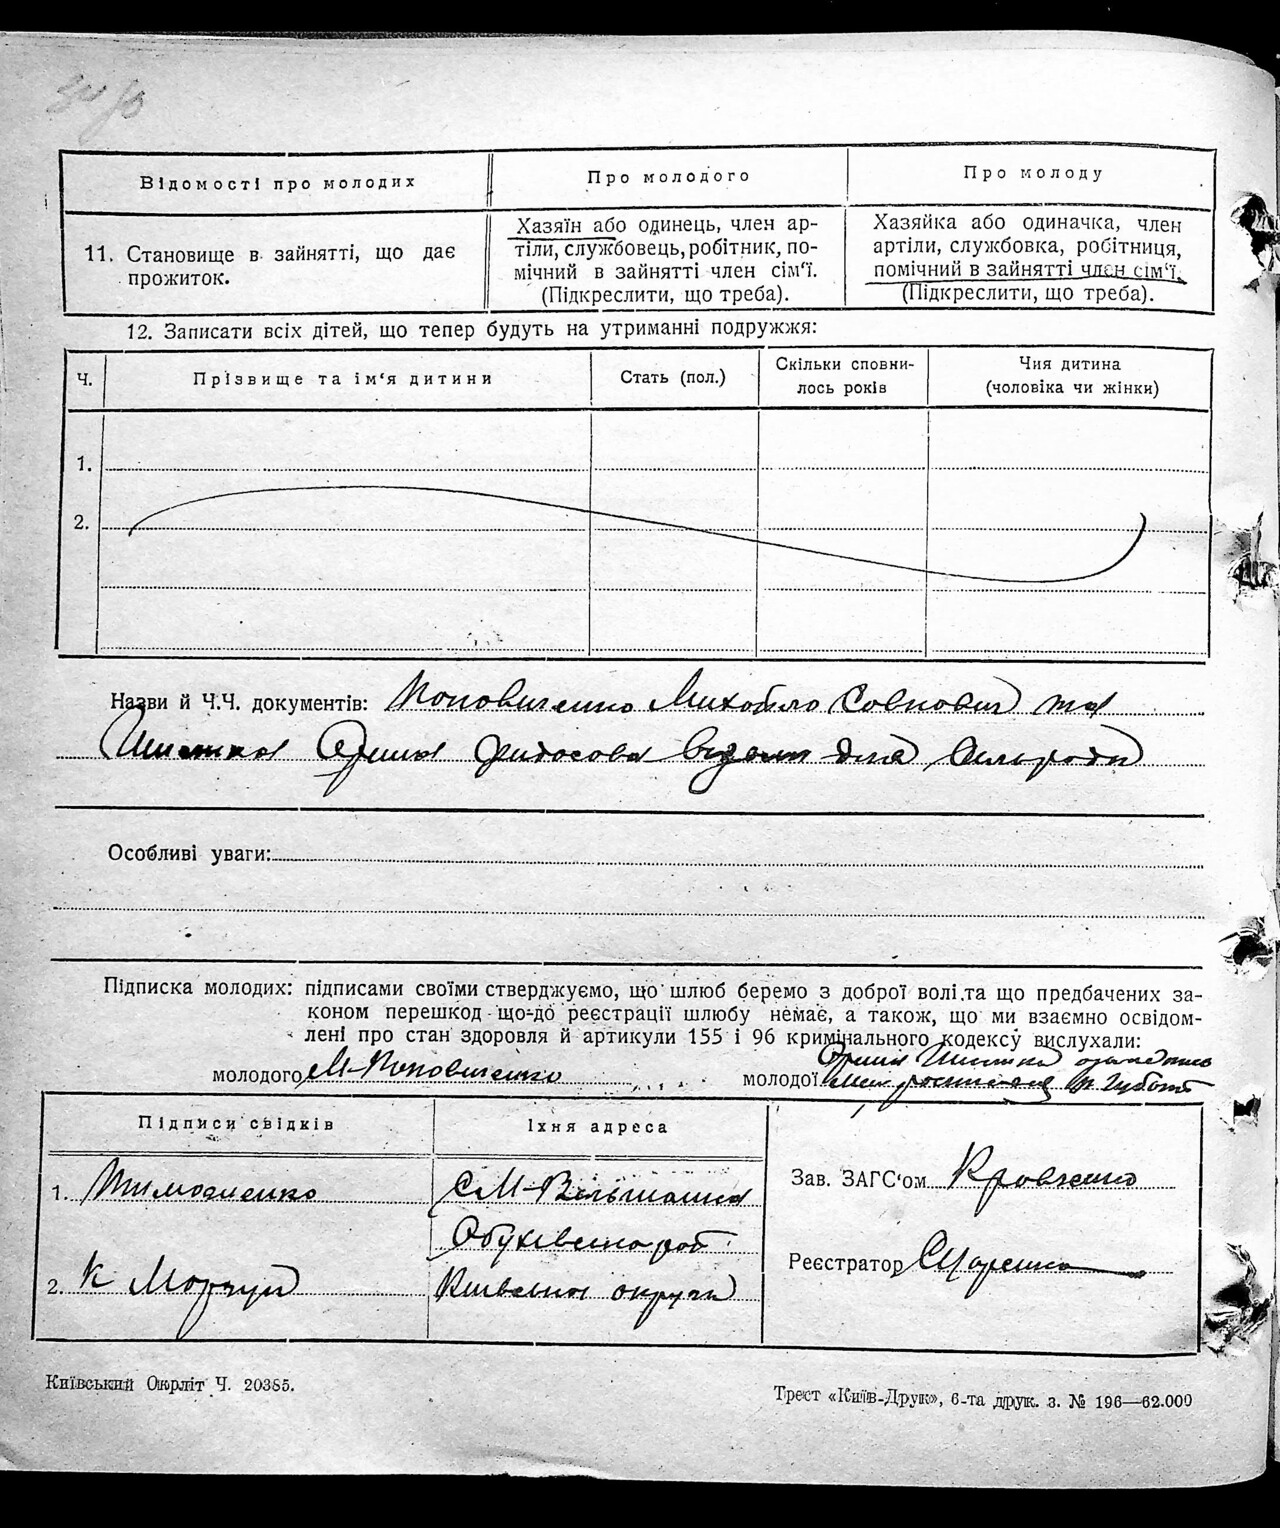 Відомості про молодих
Про молодого
Про молоду
11. Становище в зайнятті, що дає
прожиток.
Хазяїн або одинець, член ар-
тіли, службовець, робітник, по-
мічний в зайнятті член сім'ї.
(Підкреслити, що треба).
Хазяйка або одиначка, член
артіли, службовка, робітниця,
помічний в зайнятті член сім'ї.
(Підкреслити, що треба).
12. Записати всіх дітей, що тепер будуть на утриманні подружжя:
Ч.
Прізвище та ім'я дитини
Стать (пол.)
Скільки сповни-
лось років
Чия дитина
(чоловіка чи жінки)
1.
2.
Назви й Ч.Ч. документів: Поповиченко Михайло Совпович та
Сільради
Особливі уваги:
Підписка молодих: підписами своїми стверджуємо, що шлюб беремо з доброї волі та що предбачених за-
коном перешкод що-до реєстрації шлюбу немає, а також, що ми взаємно освідом-
лені про стан здоровля й артикули 155 і 96 кримінального кодексу вислухали:
молодого М Поповиченко
молодої
Підписи свідків
Їхня адреса
1. Тимошенко
С М-Вільшанка
Обухівського
2. К Моргун
Київської округи
Зав. ЗАГС'ом Кравченко
Реєстратор
Київський Окрліт Ч. 20385.
Трест «Київ-Друк», 6-та друк. з. № 196—62.000